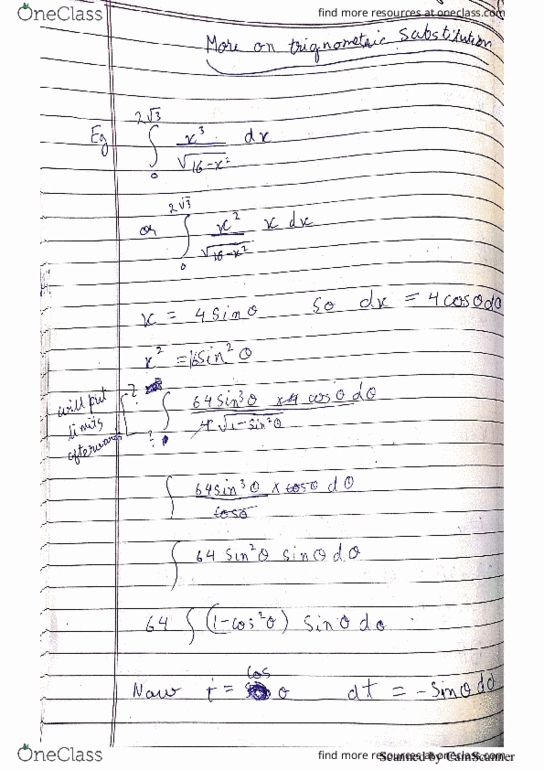 OneClass
find more resources at oneclass.com
More on trignometric Substitution
Eg ∫₀^{2√3} x³/√(16-x²) dx
or ∫₀^{2√3} x²/√(16-x²) x dx
x = 4 sin θ so dx = 4 cos θ dθ
x² = 16 sin² θ
will put limits afterwards ∫_?^? 64 sin³θ × 4 cos θ dθ / 4√(1-sin²θ)
∫ 64 sin³ θ × cos θ dθ / cos θ
∫ 64 sin² θ sin θ dθ
64 ∫ (1-cos²θ) sin θ dθ
Now t = cos θ dt = - sin θ dθ
OneClass
find more resources at oneclass.com
Scanned by CamScanner